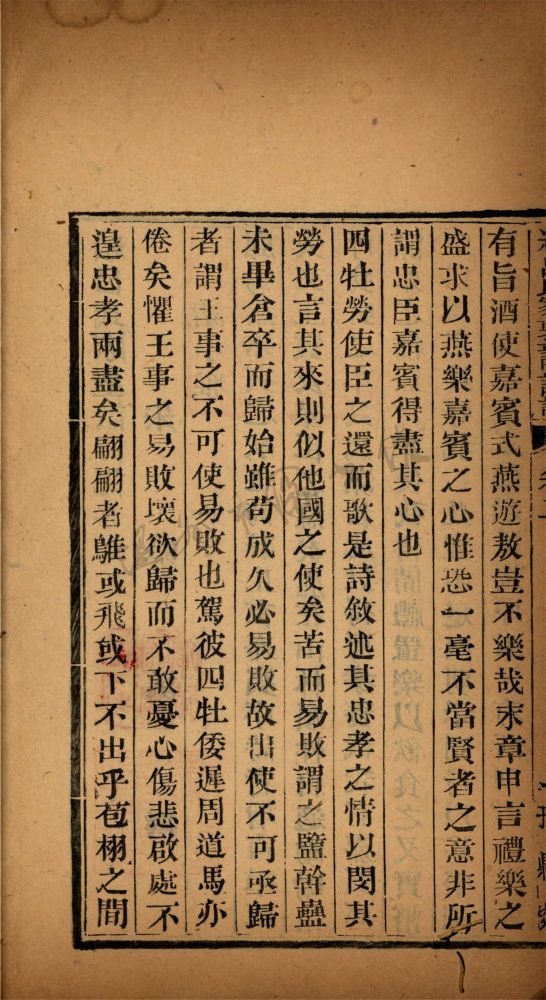 有旨酒使嘉賓式燕遊敖豈不樂哉末章申言禮樂之
盛求以燕樂嘉賓之心惟恐一毫不當賢者之意非所
謂忠臣嘉賓得盡其心也
四牡勞使臣之還而歌是詩敘述其忠孝之情以閔其
勞也言其來則似他國之使矣苦而易敗謂之盬幹蠱
未畢倉卒而歸始雖苟成久必易敗故出使不可亟歸
者謂王事之不可使易敗也駕彼四牡倭遲周道馬亦
倦矣懼王事之易敗壞欲歸而不敢憂心傷悲啟處不
遑忠孝兩盡矣翩翩者鵻或飛或下不出乎苞栩之間